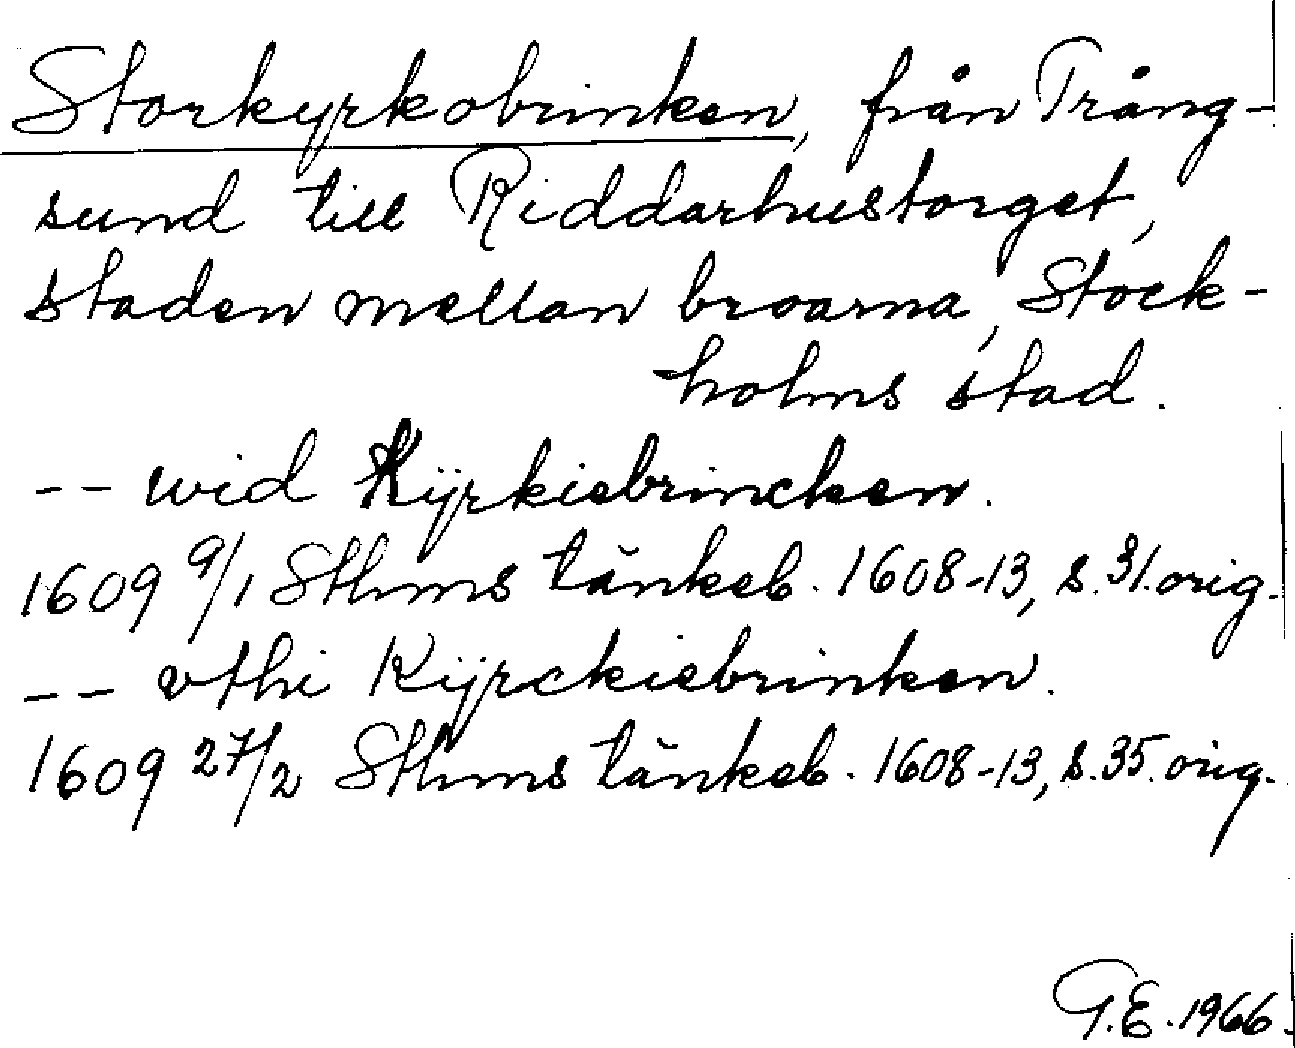 Storkyrkobrinken, från Trång-
sund till Riddarhustorget,
staden mellan broarna, Stock-
holms stad.
-- wid Kÿrkiebrincken.
1609 9/1 Sthms tänkeb. 1608-13, s. 31. orig.
-- vthi Kÿrckiebrinken.
1609 27/2 Sthms tänkeb. 1608-13, s. 35. orig.
G.E. 1966.